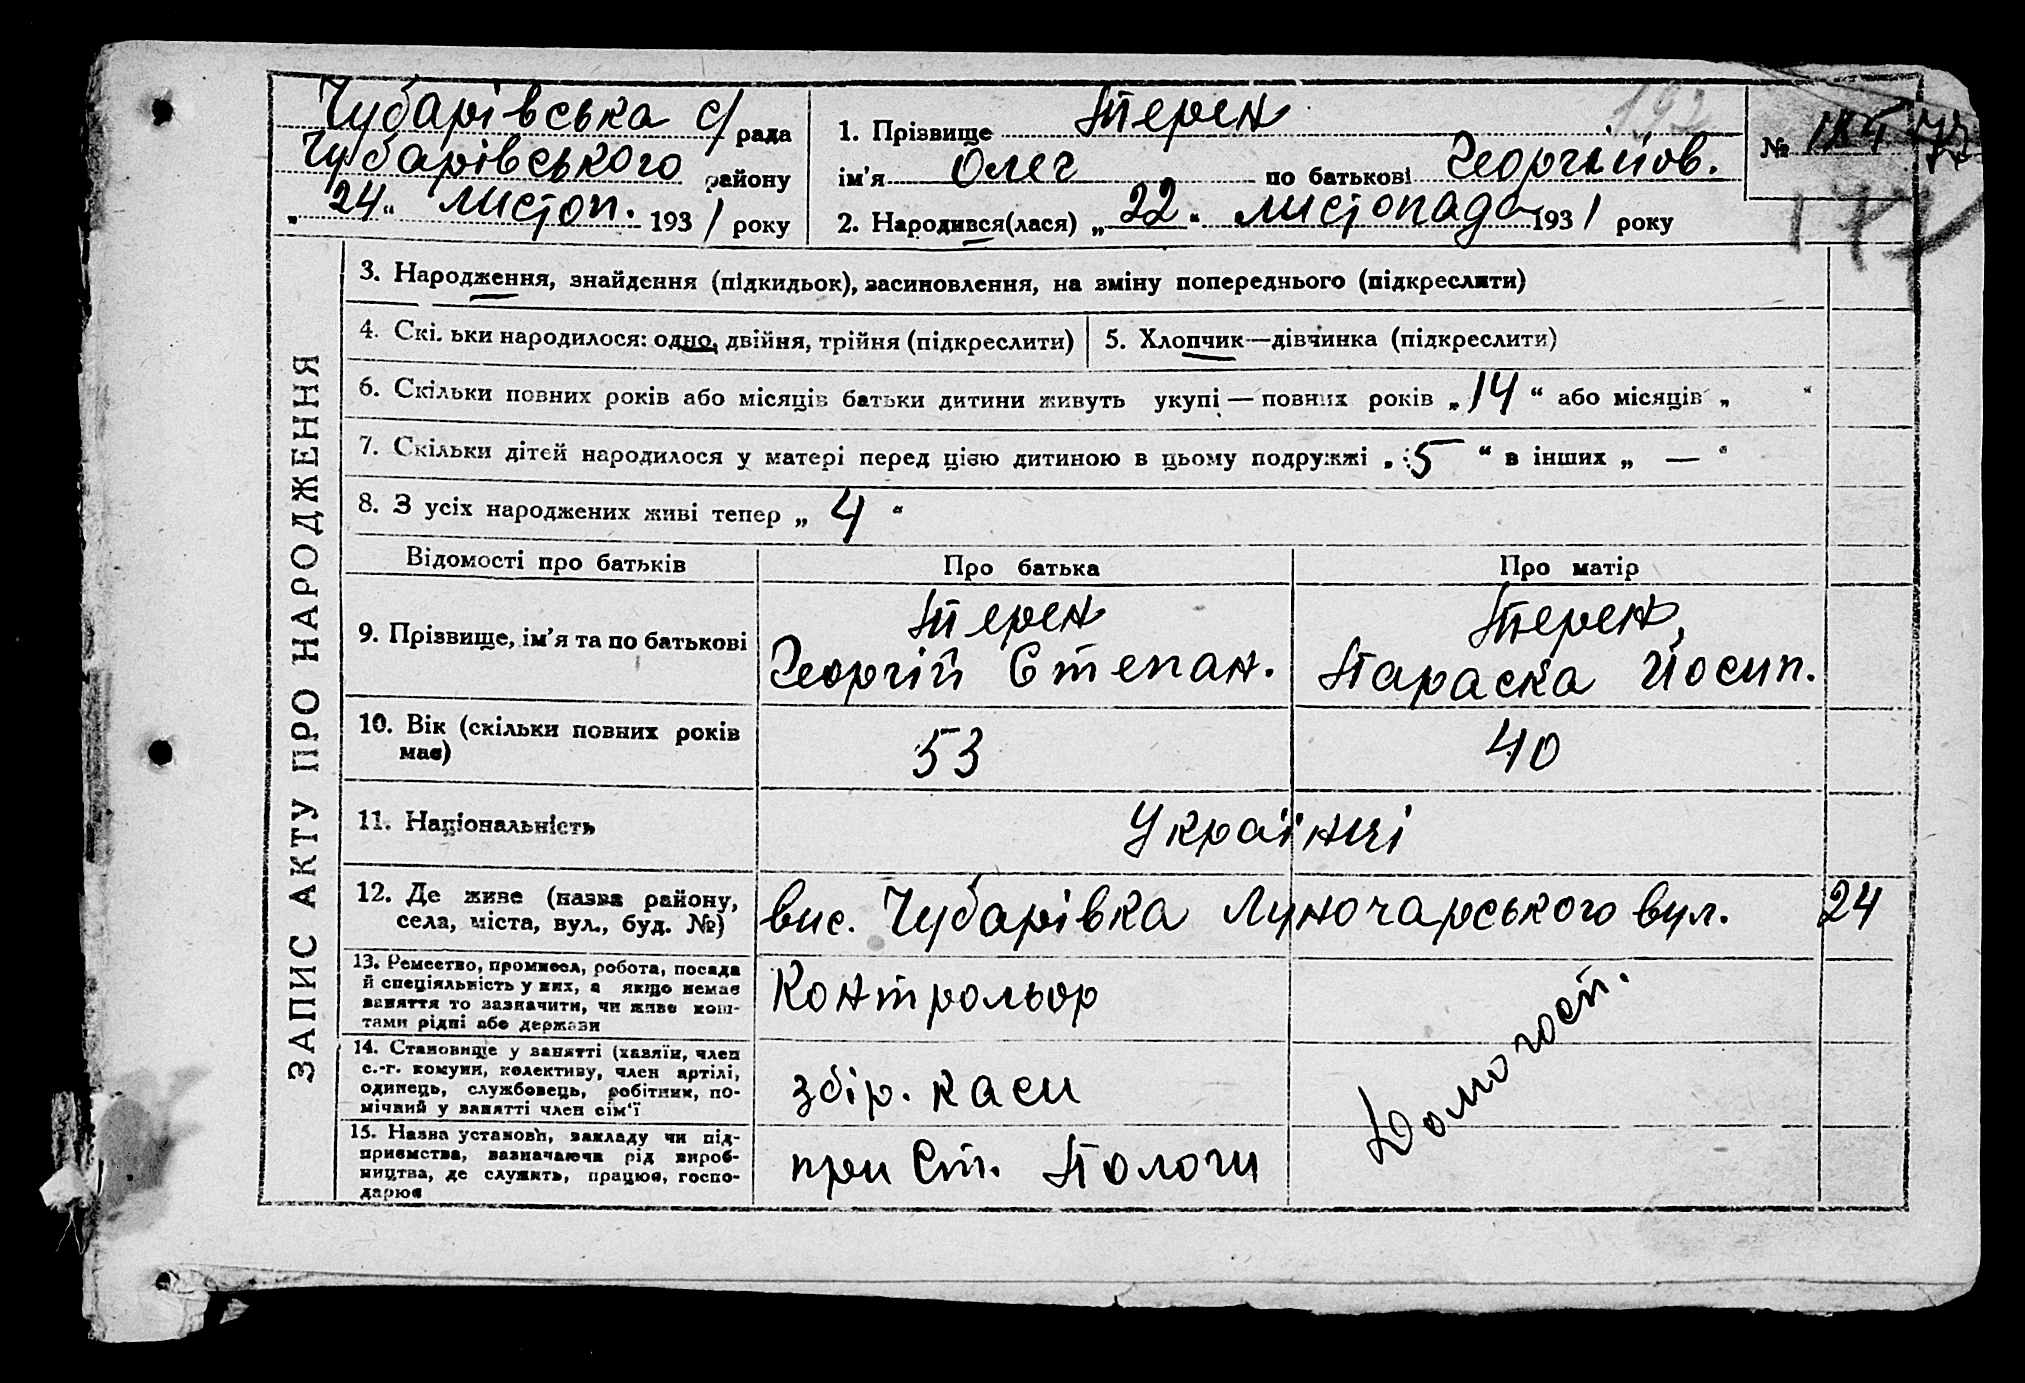 Чубарівська с/рада
Чубарівського району
„24“ листоп. 1931 року
1. Прізвище Терен
ім'я Олег по батькові Георгійов.
2. Народився(лася) „22“ листопада 1931 року
192
№
ЗАПИС АКТУ ПРО НАРОДЖЕННЯ
3. Народження, знайдення (підкидьок), засиновлення, на зміну попереднього (підкреслити)
4. Скі. ьки народилося: одно, двійня, трійня (підкреслити)
5. Хлопчик—дівчинка (підкреслити)
6. Скільки повних років або місяців батьки дитини живуть укупі — повних років „14“ або місяців „ “
7. Скільки дітей народилося у матері перед цією дитиною в цьому подружжі „5“ в інших „—“
8. З усіх народжених живі тепер „4“
Відомості про батьків Про батька Про матір
9. Прізвище, ім'я та по батькові
Терен
Георгій Степан.
Терен,
Параска Йосип.
10. Вік (скільки повних років має) 53 40
11. Національність Українці
12. Де живе (назва району,
села, міста, вул., буд. №)
вис. Чубарівка Луночарського вул. 24
13. Ремество, промисел, робота, посада
й спеціяльність у них, а якщо немає
заняття то зазначити, чи живе кош-
тами рідні або держави
Контрольор
Домогосп.
14. Становище у занятті (хазяїн, член
с.-г. комуни, колективу, член артілі,
одинець, службовець, робітник, по-
мічний у занятті член сім'ї
збір. каси
15. Назва установи, закладу чи під-
приємства, зазначаючи рід вироб-
ництва, де служить, працює, госпо-
дарює
при Ст. Пологи